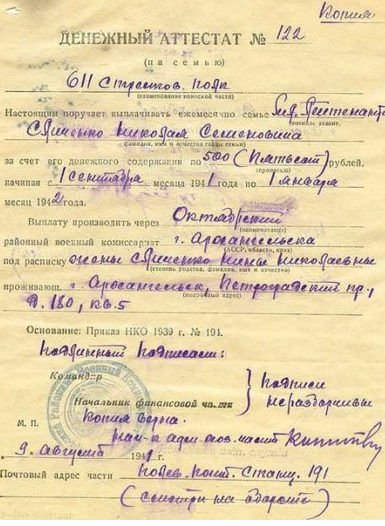 Копия
ДЕНЕЖНЫЙ АТТЕСТАТ № 122
(на семью)
611 Стрелков. полк
(наименование воинской части)
Настоящим поручает выплачивать ежемесячно семье Мл. Лейтенанта
воинское звание,
Николая Семеновича
фамилия, имя и отчество главы семьи)
за счет его денежного содержания по 500 (Пятьсот) рублей,
(прописью)
начиная с 1 сентября месяца 1941 года по 1 января
месяц 1942 года.
Выплату производить через Октябрский
(наименование)
районный военный комиссариат г. Архангельска
(АССР, область, край)
под расписку жены Нины Николаевны
(степень родства, фамилия, имя и отчество)
прожива г. Архангельск, Петроградский пр.,
(подробный адрес)
д. 180, кв. 5
Основание: Приказ НКО 1939 г. № 191.
Подлинный подписали:
Командир
Начальник финансовой части
подписи
неразборчивы
Копия верна.
М. П.
9 августа 1941 г.
Почтовый адрес части полев. почт. станц. 191
(смотри на обороте)